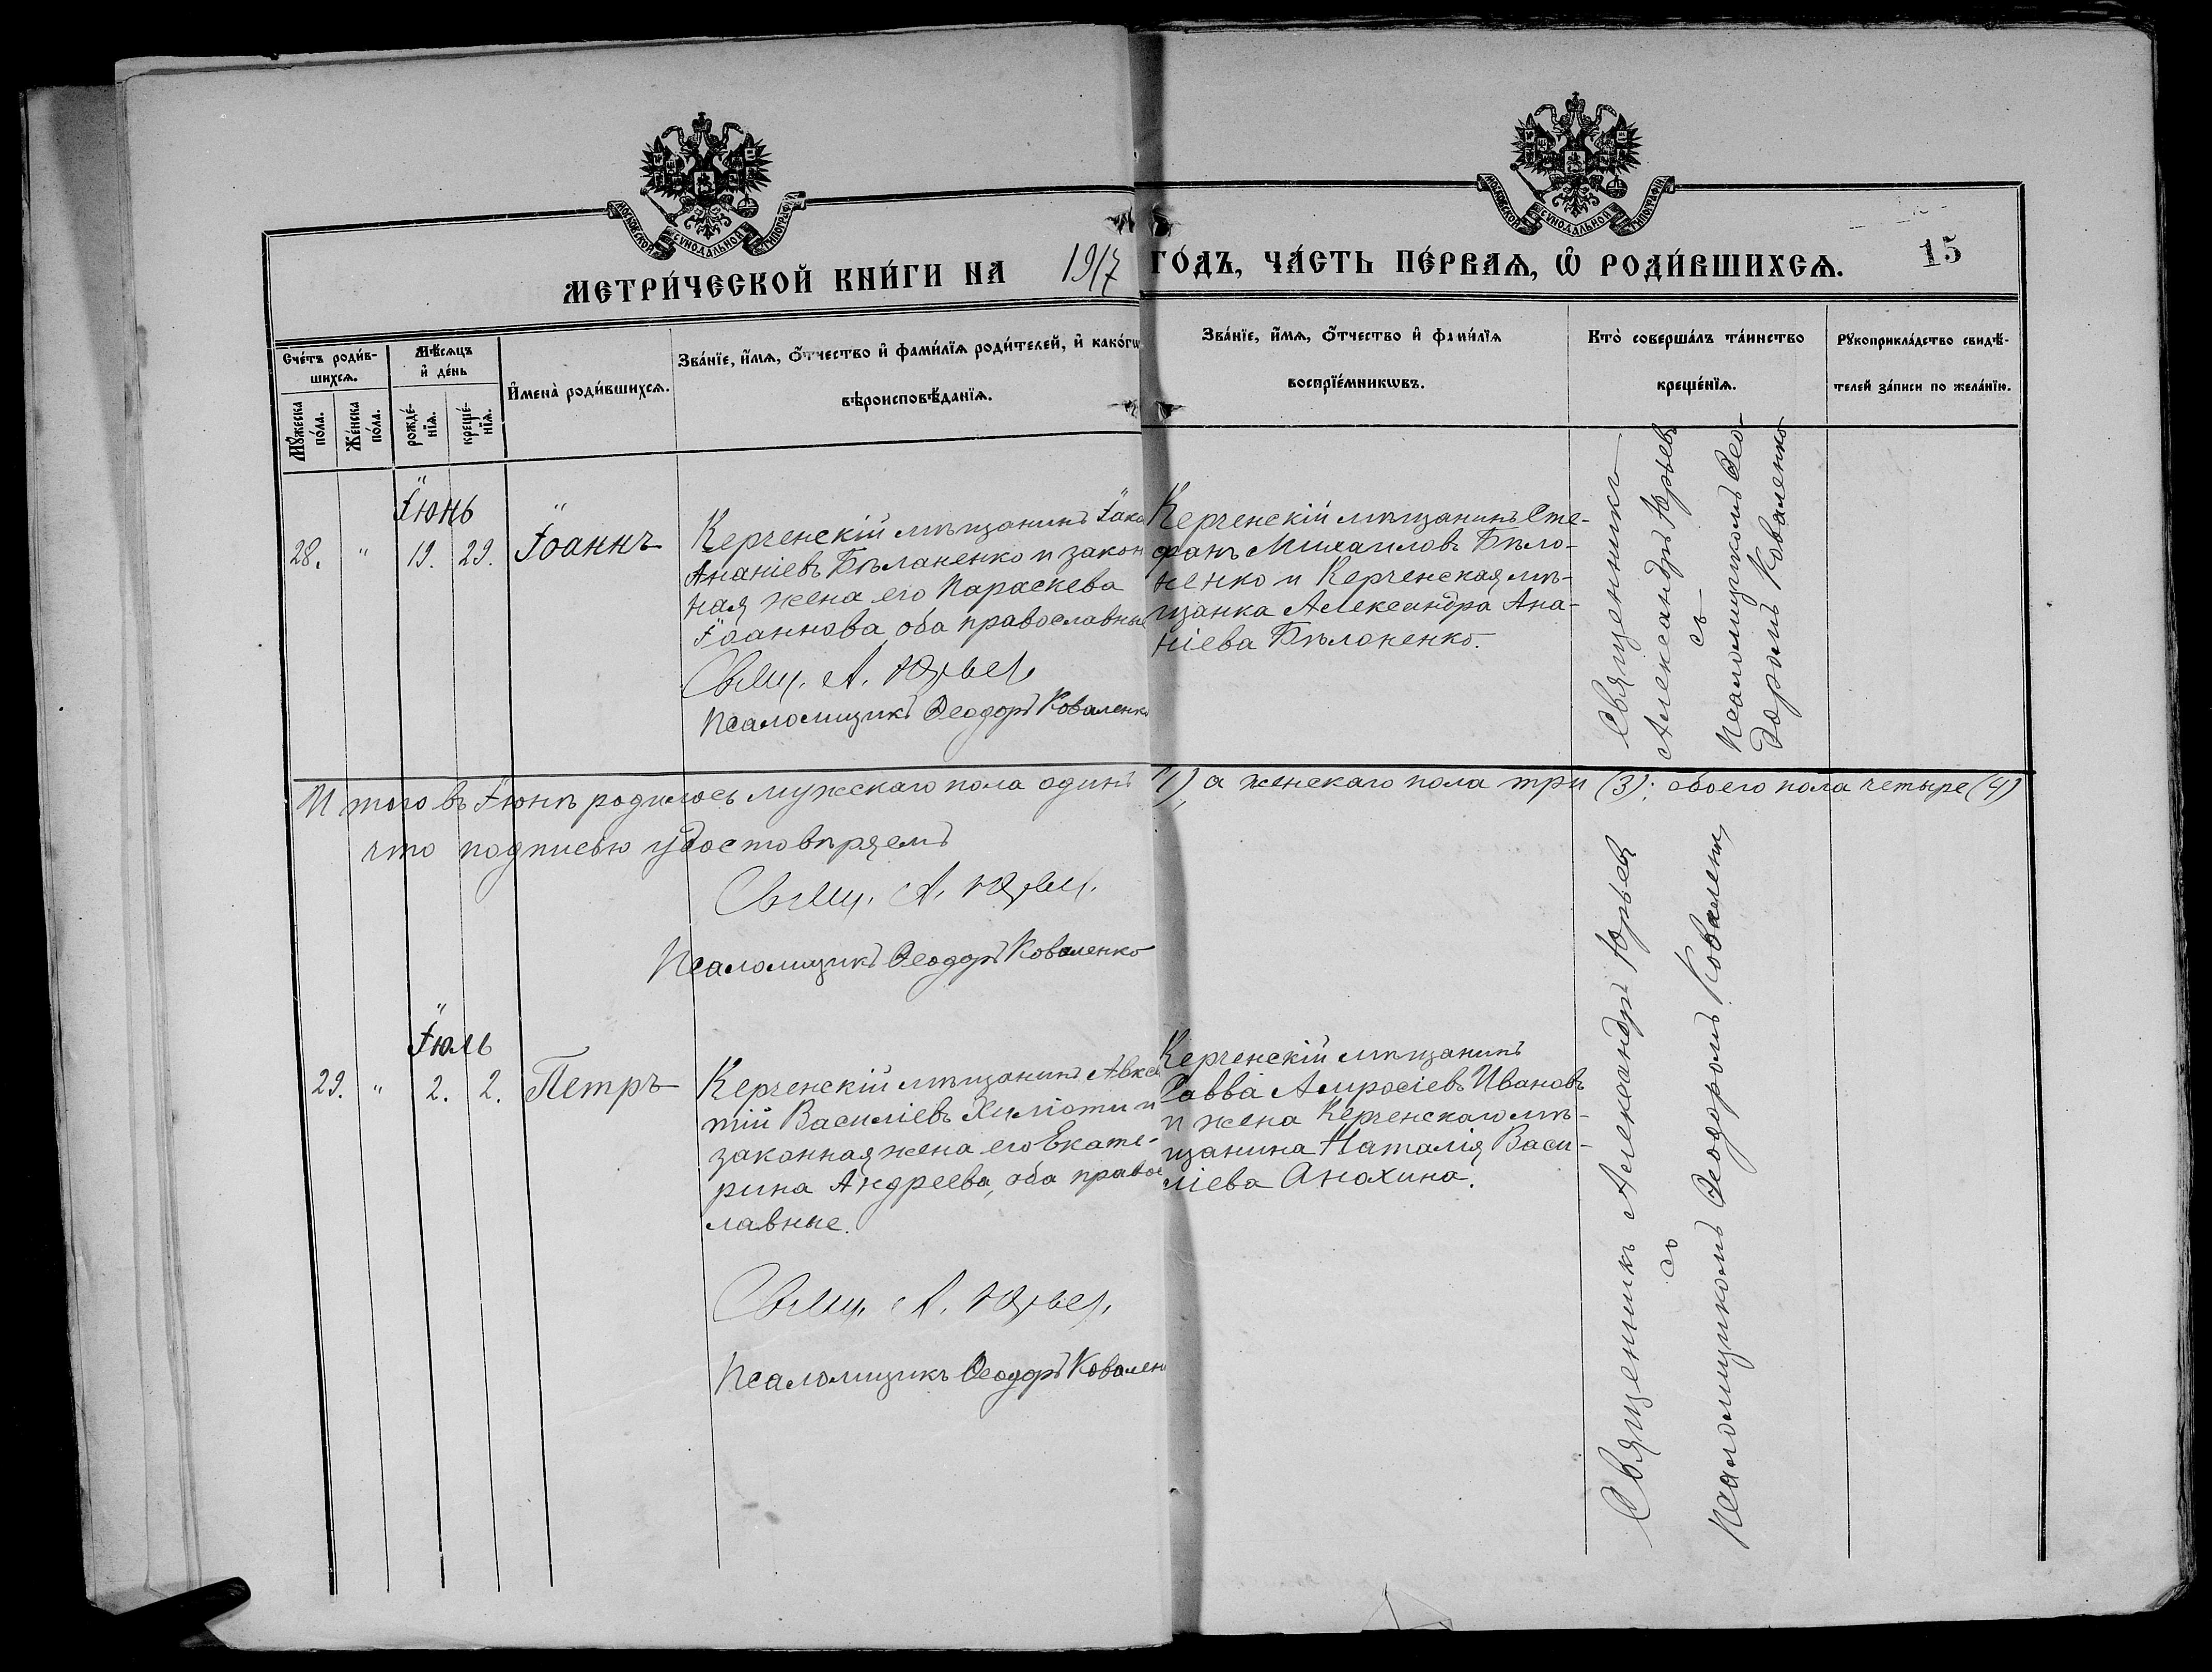 МОСКОВСКОЙ СѴНОДАЛЬНОЙ ТИПОГРАФІИ
МОСКОВСКОЙ СѴНОДАЛЬНОЙ ТИПОГРАФІИ
МЕТРИ́ЧЕСКОЙ КНИ́ГИ НА 1917 ГО́ДЪ, ЧА́СТЬ ПЕ́РВАѦ, Ѡ РОДИ́ВШИХСѦ.
15
Сче́тъ роди́в-
шихсѧ.
Мꙋ́жеска
по́ла.
Же́нска
по́ла.
Мѣ́сѧцъ
и҆ де́нь
рожде́-
нїѧ.
креще́-
нїѧ.
И҆мена̀ роди́вшихсѧ.
Зва́нїе, и҆́мѧ, ѻ҆́тчество и҆ фами́лїѧ роди́телей, и҆ како́гѡ
вѣроисповѣ́данїѧ.
Зва́нїе, и҆́мѧ, ѻ҆́тчество и҆ фами́лїѧ
воспрїе́мникѡвъ.
Кто̀ соверша́лъ та́инство
креще́нїѧ.
Рꙋкоприкла́дство свидѣ́-
телей за́писи по жела́нїю.
Іюнь
28. " 19. 29. Іоаннъ
Керченскій мѣщанинъ Іако
Ананіевъ Бѣланенко и закон
ная жена его Параскева
Іоаннова, оба православные
Свящ. А. Юрьев
Псаломщикъ Ѳеодоръ Коваленко
Керченскій мѣщанинъ Сте-
фанъ Михаиловъ Бѣло-
ненко и Керченская мѣ-
щанка Александра Ана-
ніева Бѣлоненко.
Священникъ
Александръ Юрьевъ
съ
Псаломщикомъ Ѳео-
доромъ Коваленко
Итого въ Іюнѣ родилось мужскаго пола одинъ (1), а женскаго пола три (3); обоего пола четыре (4)
что подписью удостовѣряемъ
Свящ. А. Юрьев
Псаломщикъ Ѳеодоръ Коваленко
Іюль
29. " 2. 2. Петръ
Керченскій мѣщанинъ Авксе
тій Василіевъ и
законная жена его Екате-
рина Андреева, оба правос
лавные.
Свящ. А. Юрьев
Псаломщикъ Ѳеодоръ Коваленк
Керченскій мѣщанинъ
Савва Амросіевъ Ивановъ
и жена Керченскаго мѣ-
щанина Наталія Васи-
ліева Анохина.
Священникъ Александръ Юрьевъ
съ
Псаломщикомъ Ѳеодоромъ Коваленко